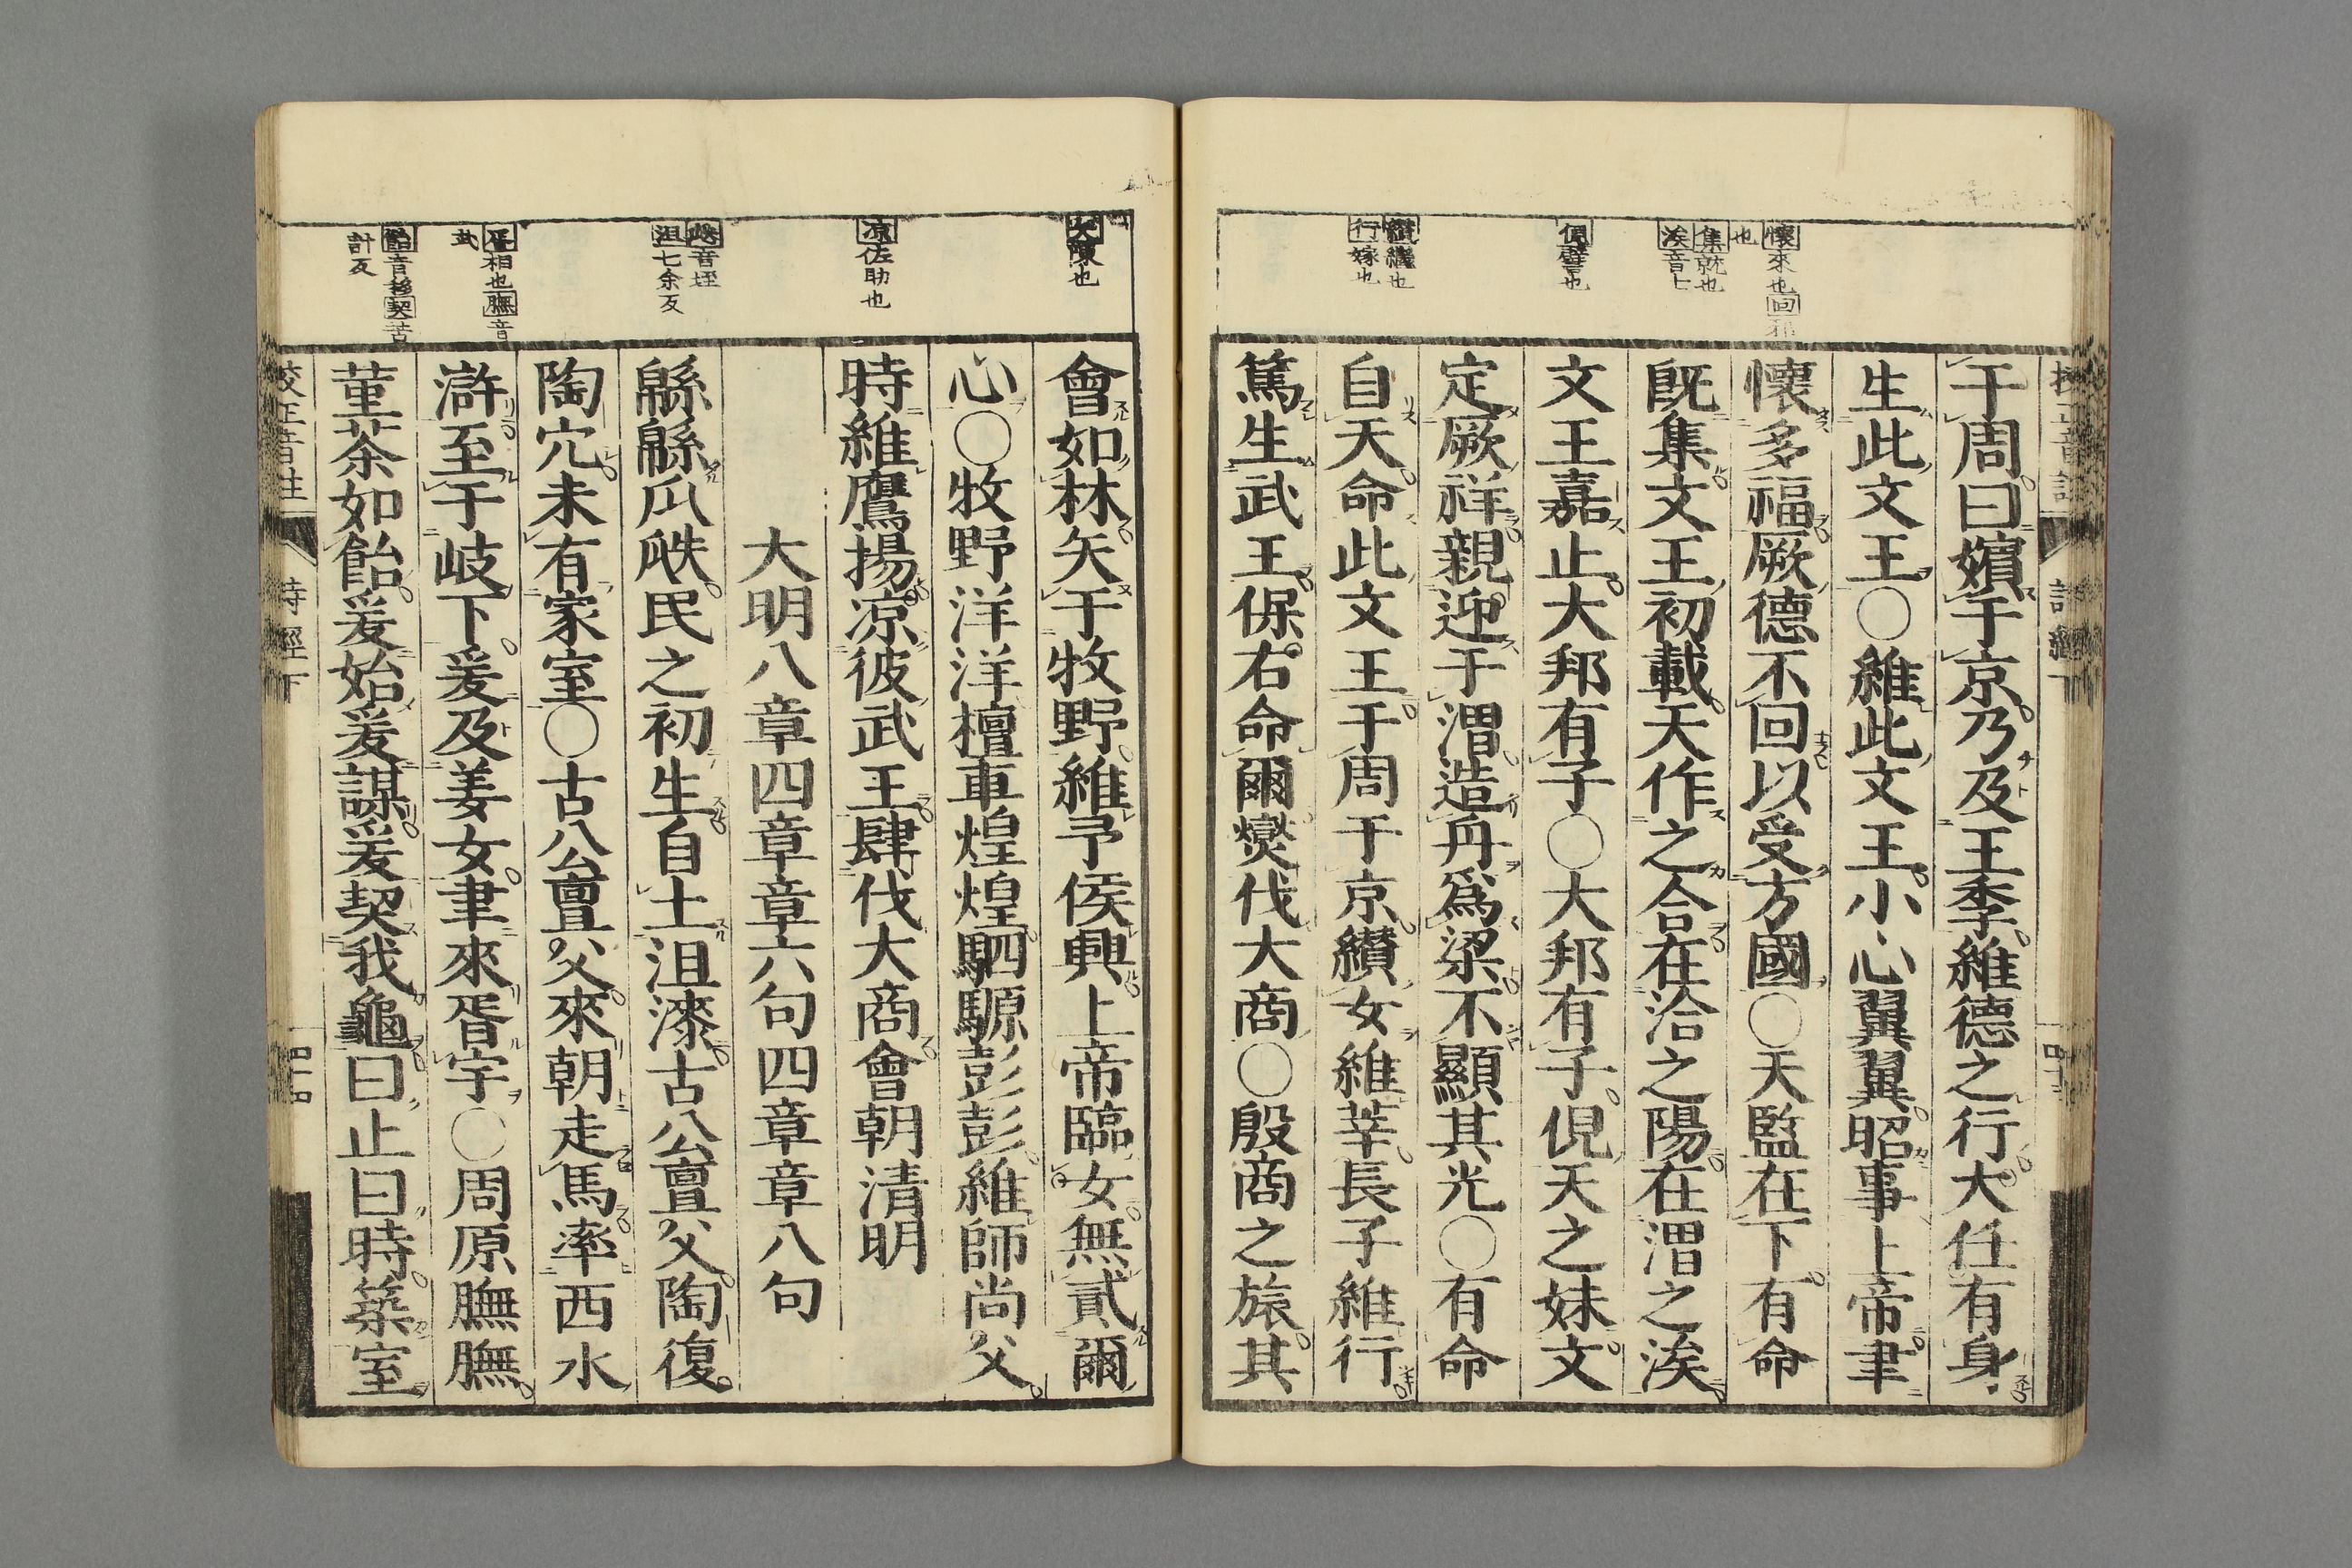 懷來也回邪
也
集就也
涘音士
俔磬也
纘繼也
行嫁也
于周曰嬪于京乃及王季維德之行大任有身
生此文王○維此文王小心翼翼昭事上帝聿
懷多福厥德不回以受方國○天監在下有命
既集文王初載天作之合在洽之陽在渭之涘
文王嘉止大邦有子○大邦有子俔天之妹文
定厥祥親迎于渭造舟爲梁不顯其光○有命
自天命此文王于周于京纘女維莘長子維行
篤生武王保右命爾燮伐大商○殷商之旅其
矢陳也
凉佐助也
瓞音垤
沮七余反
胥相也膴音
武
飴音移契苦
計反
會如林矢于牧野維予侯興上帝臨女無貳爾
心○牧野洋洋檀車煌煌駟騵彭彭維師尚父
時維鷹揚凉彼武王肆伐大商會朝清明
大明八章四章章六句四章章八句
緜緜瓜瓞民之初生自土沮漆古公亶父陶復
陶穴未有家室○古公亶父來朝走馬率西水
滸至于岐下爰及姜女聿來胥宇○周原膴膴
菫荼如飴爰始爰謀爰契我龜曰止曰時築室
校正音註 詩經下 四十四